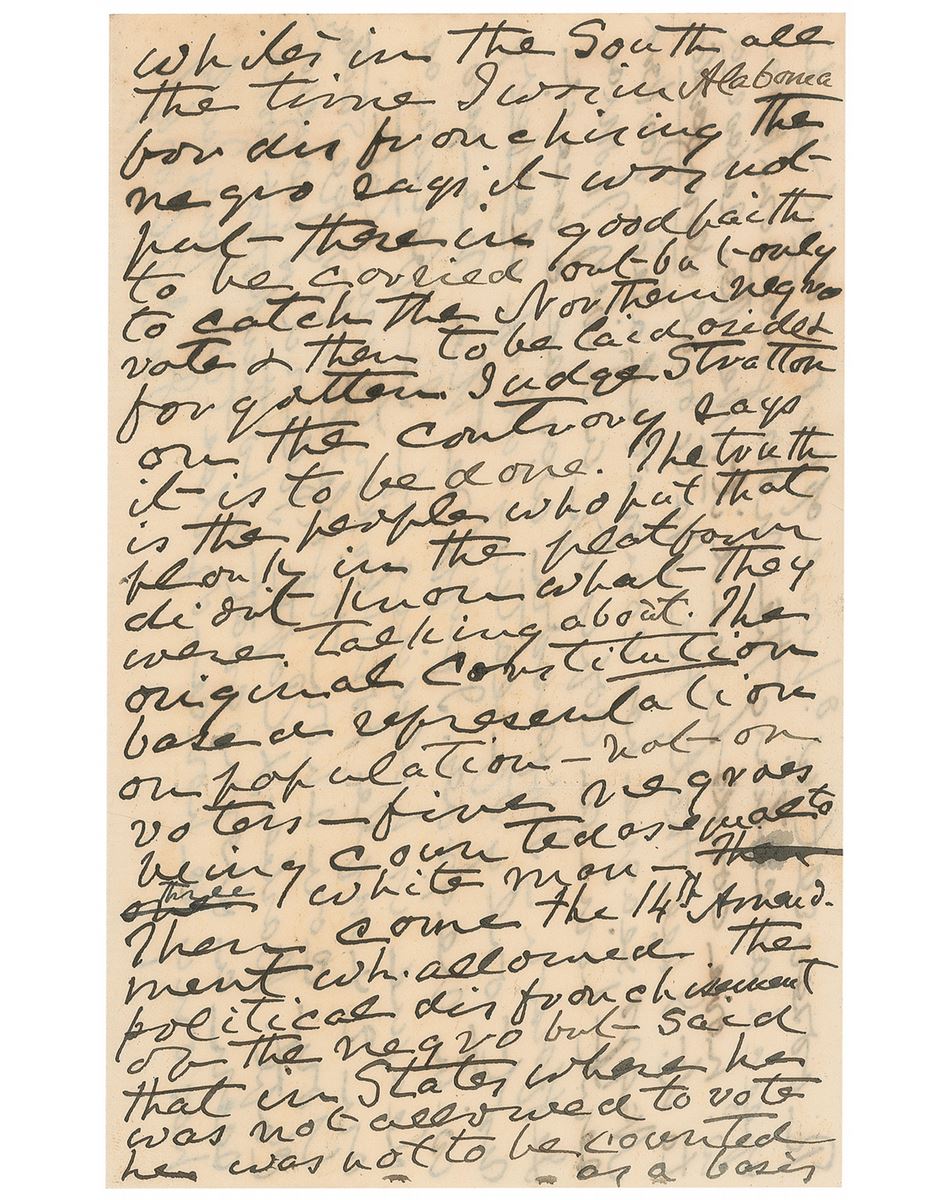 whites in the South all
the time I was in Alabama
for disfranchising the
negro says it was not
put there in good faith
to be carried out but only
to catch the Northern negro
vote & then to be laid aside &
forgotten. Judge Stratton
on the contrary says
it is to be done. The truth
is the people who put that
plank in the platform
didn't know what they
were talking about. The
original Constitution
based representation
on population – not on
voters – five negroes
being counted as equal to
three white men –
Then come the 14th Amend-
ment wh. allowed the
political disfranchisement
of the negro but said
that in States where he
was not allowed to vote
he was not to be counted
as a basis